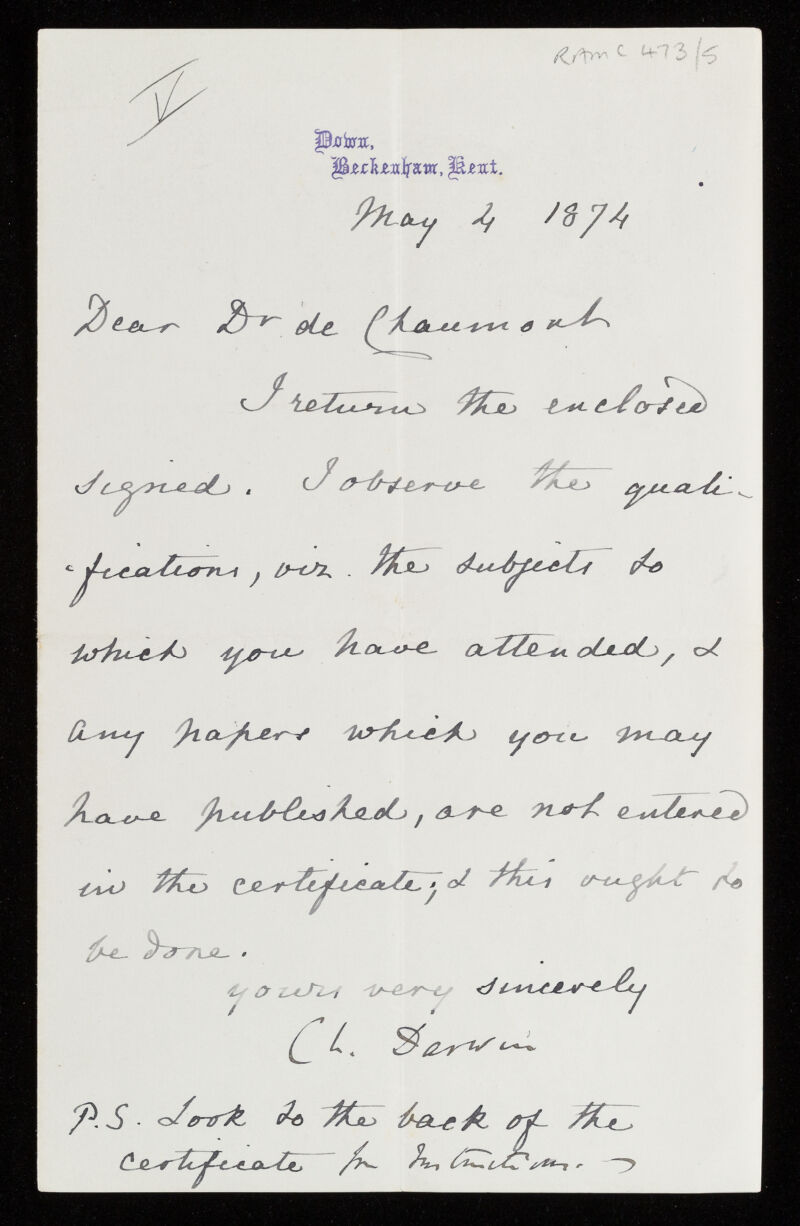 RAMC 473/5
V
Down,
Beckenham, Kent.
May 4 1874
Dear Dr de Chaumont
I return the enclosed
signed. I observe the quali-
-fications, viz. the subjects to
which you have attended, &
any papers which you may
have published, are not entered
in the certificate; & this ought to
be done.
yours very sincerely
Ch. Darwin
P.S. Look to the back of the
certificate for Instructions. —